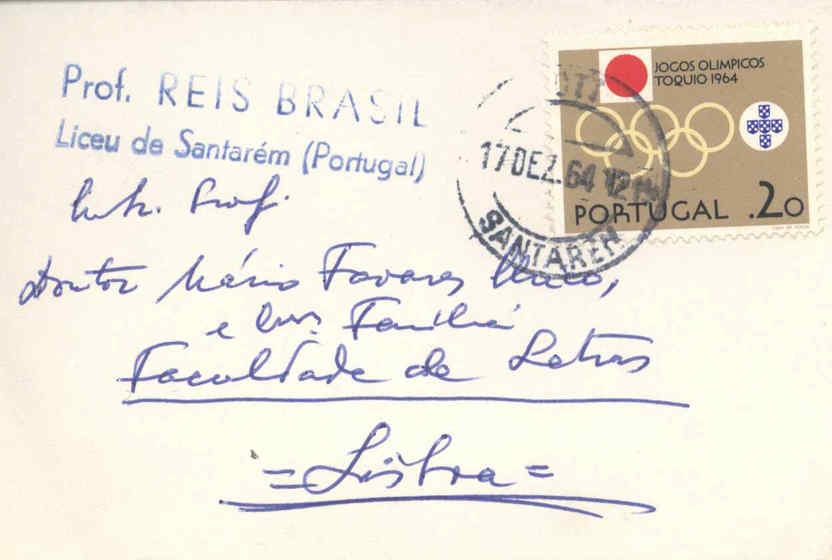 Prof. REIS BRASIL
Liceu de Santarém (Portugal)
JOGOS OLIMPICOS
TOQUIO 1964
PORTUGAL .20
CTT
17 DEZ. 64 12
SANTAREM
Prof.
Doutor Mário Tavares Chicó,
e Família
Faculdade de Letras
=Lisboa=